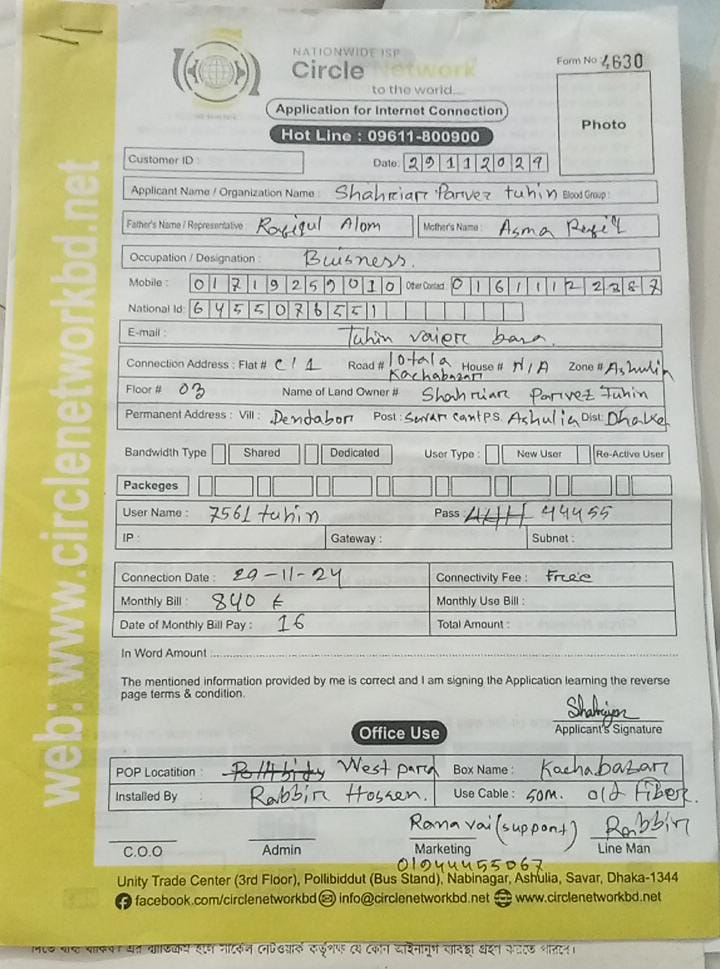 NATIONWIDE ISP
Circle Network
to the world....
Form No 4630
Application for Internet Connection
Hot Line : 09611-800900
Photo
Customer ID :
Date: 29112024
Applicant Name / Organization Name : Shahriar Parvez tuhin Blood Group :
Father's Name / Representative : Rafiqul Alom Mother's Name : Asma
Occupation / Designation : Buisness.
Mobile : 01719259010 Other Contact 01611122387
National Id: 6455078551
E-mail : Tuhin vaier basa.
Connection Address : Flat # C/1 Road # 10 tala Kachabazar House # N/A Zone # Ashulia
Floor # 03 Name of Land Owner # Shahriar Parvez Tuhin
Permanent Address : Vill : Dendabor Post : Savar cant P.S. Ashulia Dist: Dhaka
Bandwidth Type Shared Dedicated User Type : New User Re-Active User
Packeges
User Name : 7561 tuhin Pass : 44455
IP : Gateway : Subnet :
Connection Date : 29-11-24 Connectivity Fee : Free
Monthly Bill : 840 ৳ Monthly Use Bill :
Date of Monthly Bill Pay : 16 Total Amount :
In Word Amount :
The mentioned information provided by me is correct and I am signing the Application learning the reverse
page terms & condition.
Shahriyar
Applicant's Signature
Office Use
POP Locatition : West para Box Name : Kachabazar
Installed By : Rabbir Hossen. Use Cable : 50m. old Fiber.
Rana vai (support) Rabbir
C.O.O Admin Marketing Line Man
01944455067
Unity Trade Center (3rd Floor), Pollibiddut (Bus Stand), Nabinagar, Ashulia, Savar, Dhaka-1344
facebook.com/circlenetworkbd info@circlenetworkbd.net www.circlenetworkbd.net
web: www.circlenetworkbd.net